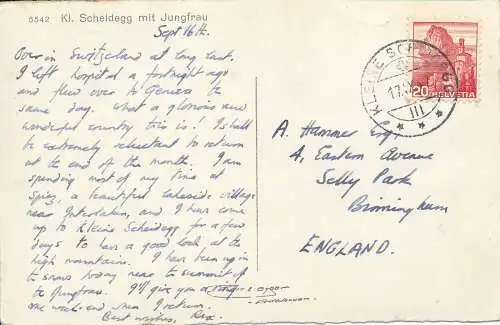 5542 Kl. Scheidegg mit Jungfrau
Sept 16th.
Over in Switzerland at long last.
I left hospital a fortnight ago
and flew over to Geneva the
same day. What a glorious and
wonderful country this is! I shall
be extremely reluctant to return
at the end of the month. I am
spending most of my time at
Spiez, a beautiful lakeside village
near Interlaken, and I have come
up to Kleine Scheidegg for a few
days to have a good look at the
high mountains. I have been up in
the snows today near the summit of
the Jungfrau. I'll give you a ring
one week-end when I return.
Best wishes, Rex.
A. Hammer Esq.,
4, Eastern Avenue
Selly Park
Birmingham
ENGLAND.
KLEINE SCHEIDEGG
17.
III
20 HELVETIA